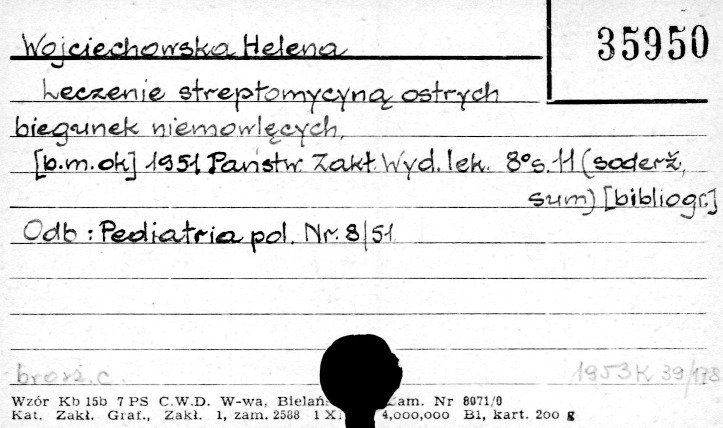 Wojciechowska Helena
35950
Leczenie streptomycyną ostrych
biegunek niemowlęcych.
[b.m.ok] 1951 Państw. Zakł. Wyd. lek. 8° s. 11 (soderž,
sum) [bibliogr.]
Odb : Pediatria pol. Nr. 8/51
brosz. c. 1953 K 39/178
Wzór Kb 15b 7 PS C.W.D. W-wa, Zam. Nr 8071/0
Kat. Zakł. Graf., Zakł. 1, zam. 2588 4,000,000 B1, kart. 200 g